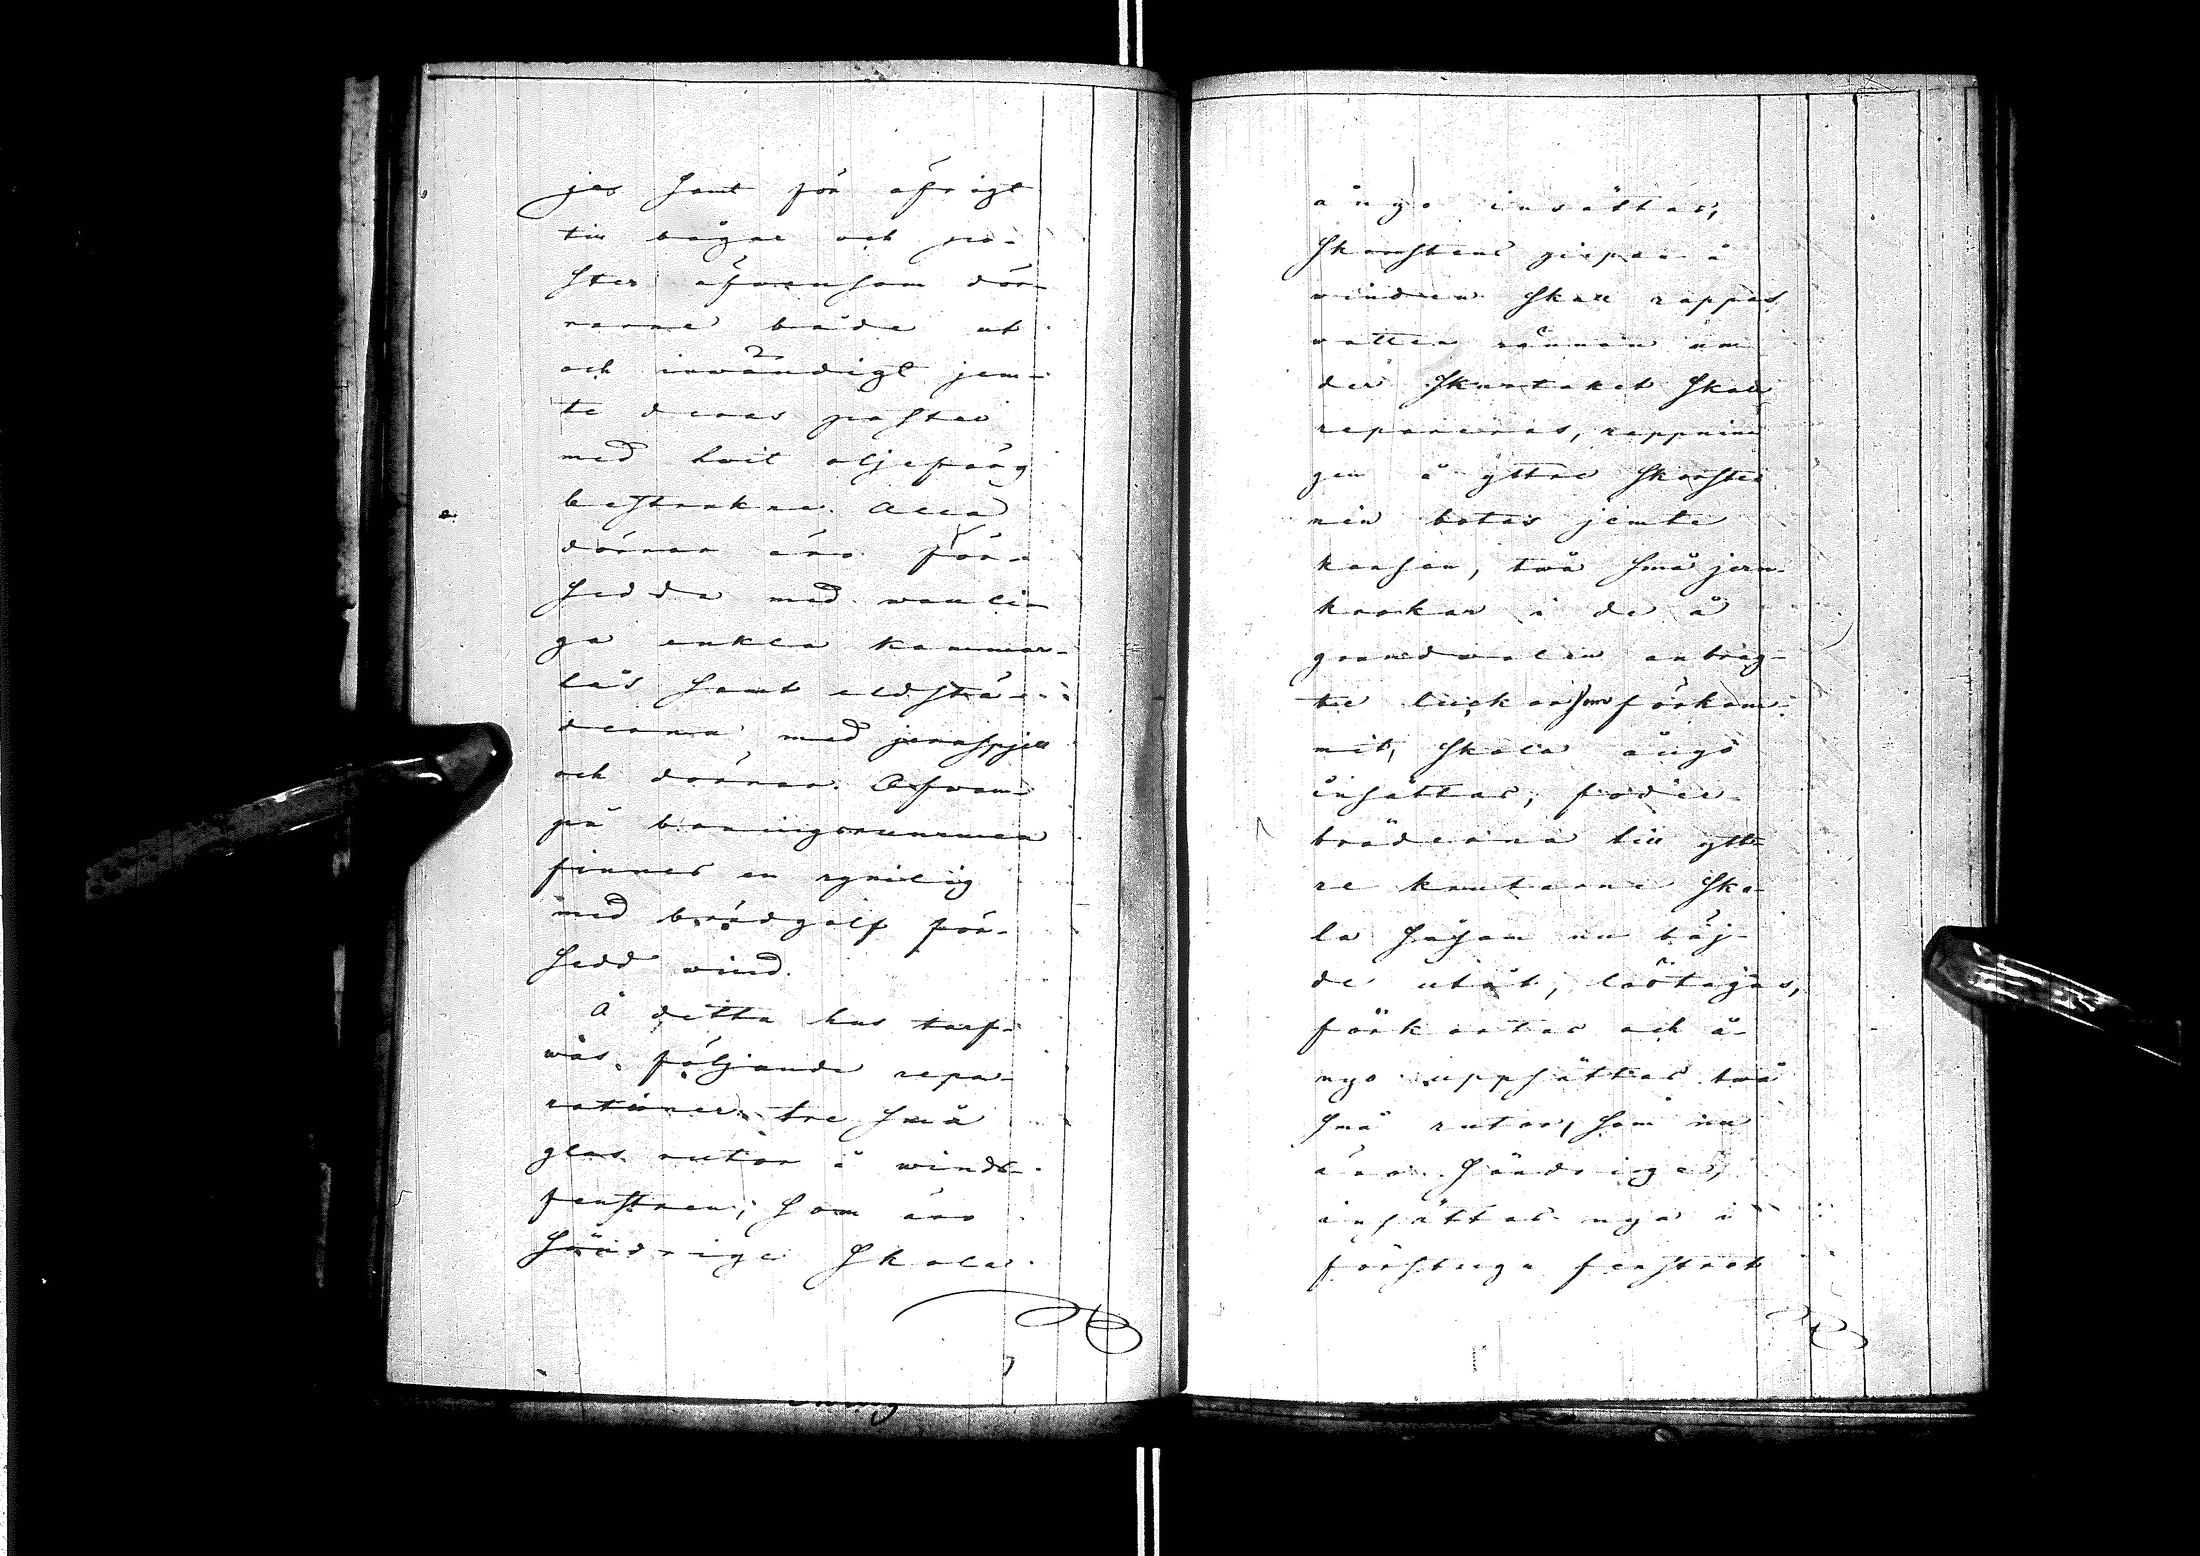 jes samt för öfrigt
till bågar och po-
ster äfvensom dör-
rarne både ut
och inwändigt jem-
te deras poster
med hvit oljefärg
bestrukne. Alla
dörrar äro för-
sedda med wanli-
ga enkla kammar-
lås samt eldstä-
derna med jernspjell
och dörrar. Ofwan-
på boningsrummen
finnes en rymlig
med brädgolf för-
sedd wind.
Å detta hus torf-
was följande repa-
rationer: tre små
glas rutor å winds-
fenstren, som äro
söndrige skola
ånyo insättas,
skorstens pipan å
winden skall rappas
vatten rännan un
der skurtaket skall
repareras, rappnin
gen å yttre skorste
nen botas jemte
kransen, twå små jern-
krokar i de å
grundwalen anbrag-
te luckor som förkom-
mit, skola ånyo
insättas, foder-
bräderna till ytt-
re knutarne ska-
la såsom nu böj-
de utåt, löstagas,
förkortas och å-
nyo uppsättas twå
små rutor, som nu
äro söndrige,
insättas nya i
förstugu fenstret